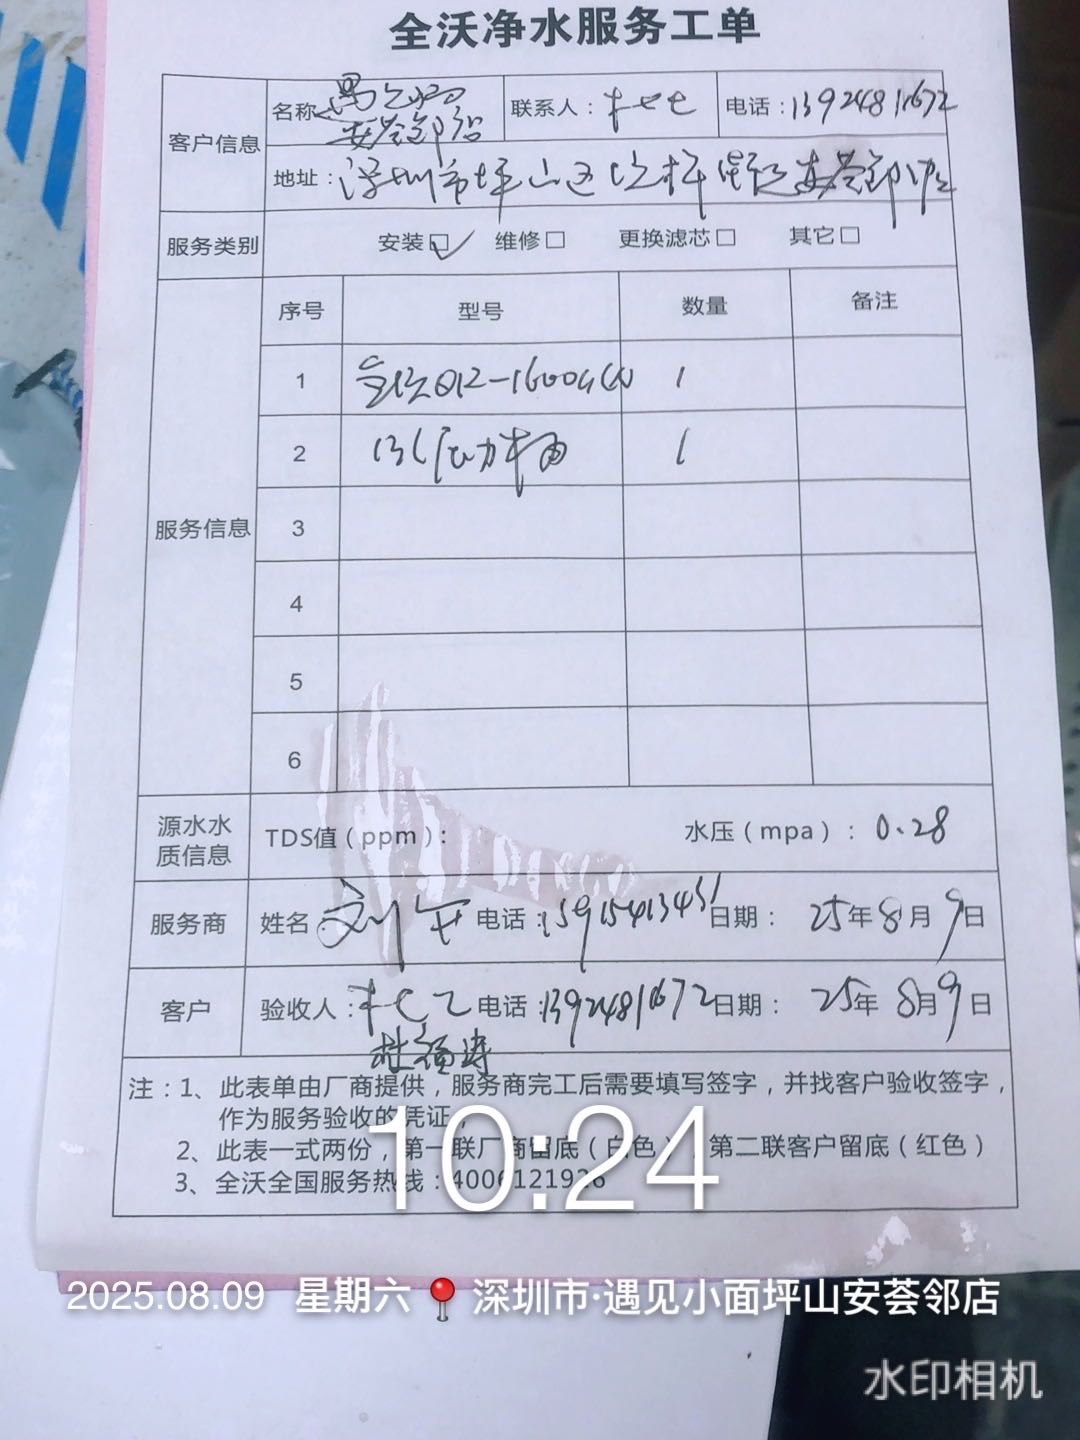 全沃净水服务工单
客户信息
名称 遇见小面 安荟邻店
联系人: 杜 电话: 13924811672
地址: 深圳市坪山区坑梓 安荟邻
服务类别 安装☑ 维修□ 更换滤芯□ 其它□
服务信息
序号 型号 数量 备注
1 -1600G 1
2 压力桶 1
3
4
5
6
源水水质信息 TDS值(ppm): 水压(mpa): 0.28
服务商 姓名: 刘 电话: 15915413451 日期: 25年8月9日
客户 验收人: 杜 电话: 13924811672 日期: 25年8月9日
杜福涛
注:1、此表单由厂商提供,服务商完工后需要填写签字,并找客户验收签字,
作为服务验收的凭证;
2、此表一式两份,第一联厂商留底(白色),第二联客户留底(红色)
3、全沃全国服务热线:4006121926
10:24
2025.08.09 星期六 深圳市·遇见小面坪山安荟邻店
水印相机